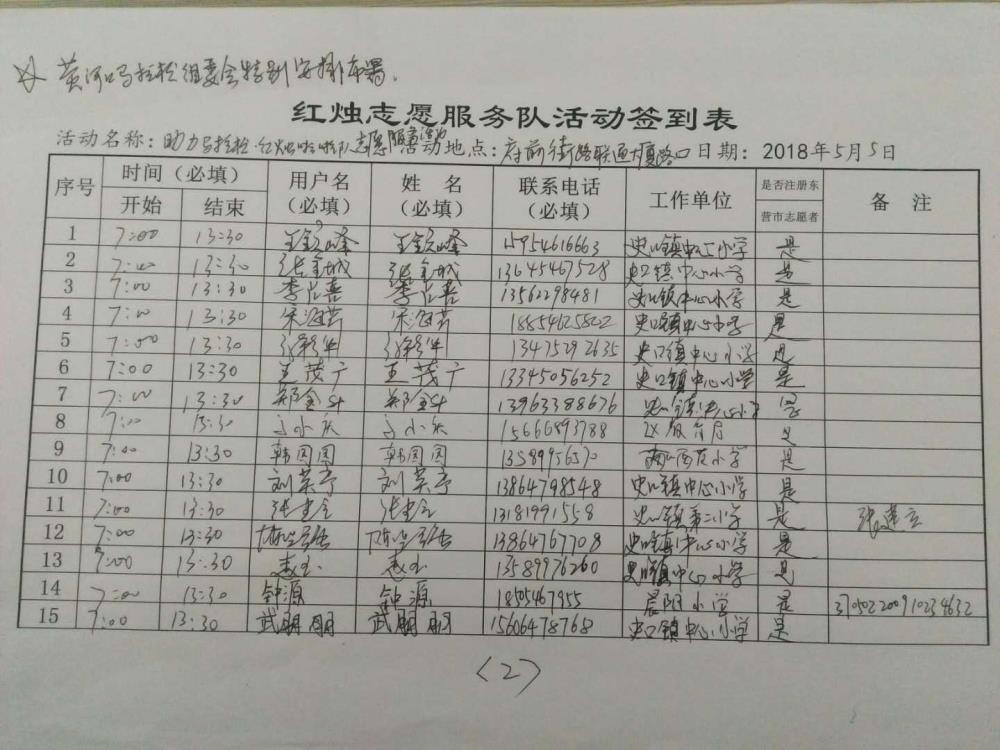 黄河口马拉松组委会特别安排布署。
红烛志愿服务队活动签到表
活动名称：助力马拉松·红烛啦啦队志愿服务活动 活动地点：府前街路联通大厦路口 日期：2018年5月5日
序号 时间（必填） 用户名（必填） 姓名（必填） 联系电话（必填） 工作单位 是否注册东营市志愿者 备注
开始 结束
1 7:00 13:30 15954616663 史口镇中心小学 是
2 7:00 13:30 张金城 张金城 13645467528 史口镇中心小学 是
3 7:00 13:30 李占喜 李占喜 13562298481 史口镇中心小学 是
4 7:00 13:30 宋海芸 宋海芸 18854625802 史口镇中心小学 是
5 7:00 13:30 13475292635 史口镇中心小学 是
6 7:00 13:30 王茂广 王茂广 13345056252 史口镇中心小学 是
7 7:00 13:30 13963388676 史口镇中心小学 是
8 7:00 13:30 15666893788 区教育局 是
9 7:00 13:30 韩园园 韩园园 小学 是
10 7:00 13:30 刘英亭 刘英亭 13864798548 史口镇中心小学 是
11 7:00 13:30 张建立 张建立 13181991558 史口镇第二小学 是 张建立
12 7:00 13:30 13864767708 史口镇中心小学 是
13 7:00 13:30 13589976260 史口镇中心小学 是
14 7:00 13:30 钟源 钟源 晨阳小学 是 370502200910234632
15 7:00 13:30 武明明 武明明 15606478768 史口镇中心小学 是
（2）